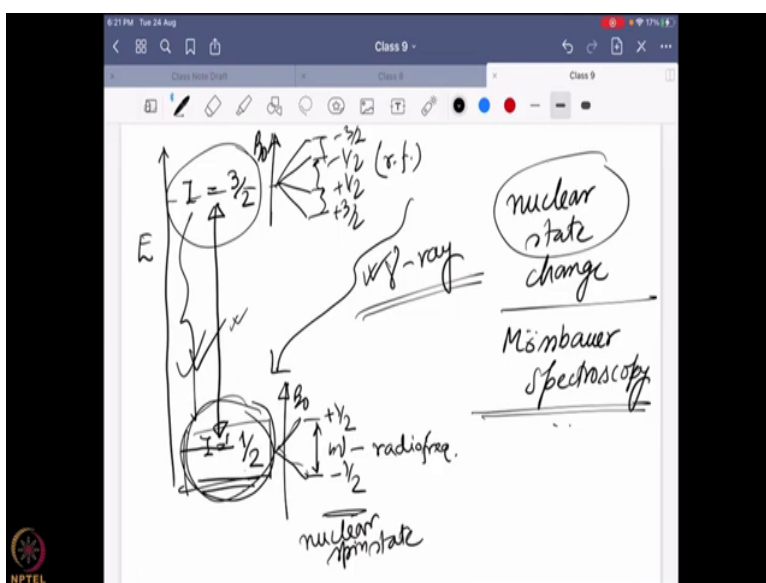 6:21 PM Tue 24 Aug
17%
Class 9
Class Note Draft
Class 8
Class 9
E
I = 3/2
B0
-3/2
-1/2
+1/2
+3/2
(r.f.)
γ-ray
nuclear
state
change
Mönbauer
spectroscopy
I = 1/2
B0
+1/2
-1/2
radiofreq.
nuclear
spin state
NPTEL